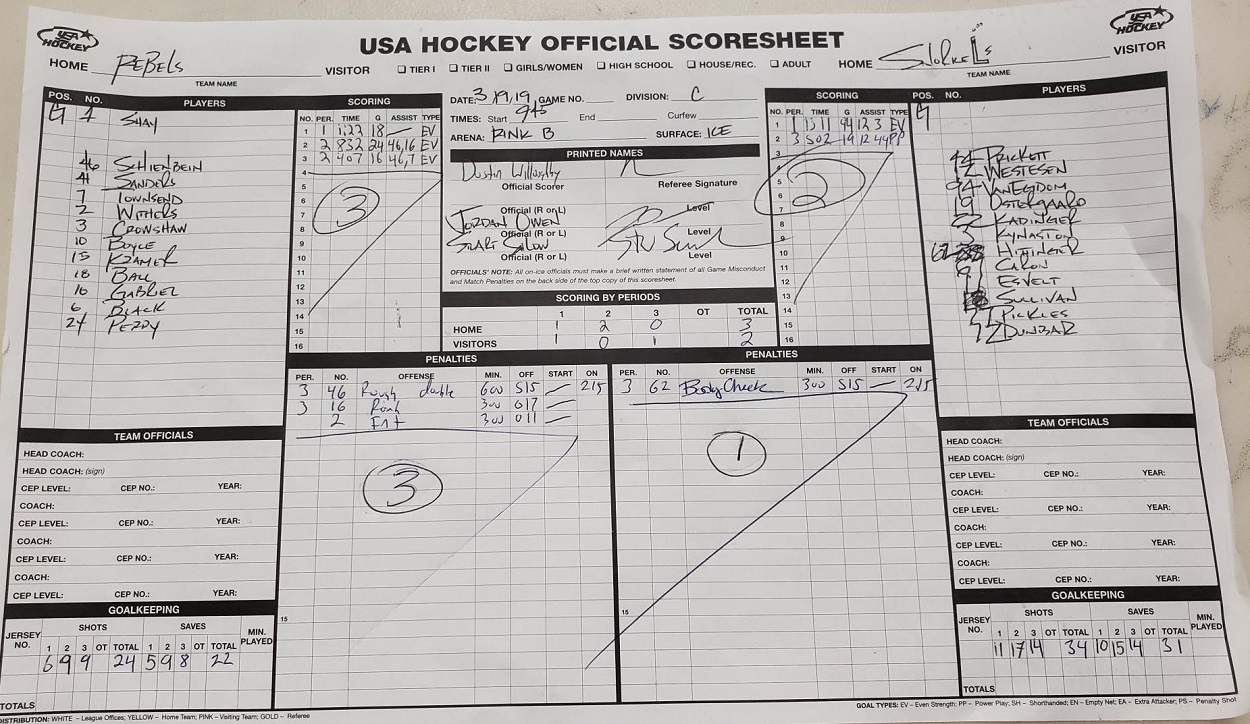 USA HOCKEY
USA HOCKEY OFFICIAL SCORESHEET
USA HOCKEY
HOME REBELS VISITOR
TEAM NAME
TIER I TIER II GIRLS/WOMEN HIGH SCHOOL HOUSE/REC. ADULT
HOME SNORKELS VISITOR
TEAM NAME
POS. NO. PLAYERS
G 1 SHAY
46 SHIENBEIN
41 SANDERS
7 TOWNSEND
2 WITHERS
3 CROWSHAW
10 BOYCE
15 KRAMER
18 BALL
16 GABRIEL
6 BLACK
24 PERRY
SCORING
NO. PER. TIME G ASSIST TYPE
1 1 1:22 18 — EV
2 2 832 24 46,16 EV
3 2 407 16 46,7 EV
4
5
6
7
8
9
10
11
12
13
14
15
16
3
DATE: 3/9,19 GAME NO. DIVISION: C
TIMES: Start 945 End Curfew
ARENA: RINK B SURFACE: ICE
PRINTED NAMES
Dustin Willoughby
Official Scorer Referee Signature
Official (R or L) Level
JORDAN OWEN
Official (R or L) Level
START SLOW
Official (R or L) Level
OFFICIALS' NOTE: All on-ice officials must make a brief written statement of all Game Misconduct
and Match Penalties on the back side of the top copy of this scoresheet.
SCORING BY PERIODS
1 2 3 OT TOTAL
HOME 1 2 0 3
VISITORS 1 0 1 2
SCORING
NO. PER. TIME G ASSIST TYPE
1 1 1311 94 12 3 EV
2 3 502 19 12 44 PP
3
4
5
6
7
8
9
10
11
12
13
14
15
16
2
POS. NO. PLAYERS
G
44 PRICKETT
12 WESTESEN
94 VANEGDOM
19 OSTERGAARD
22 KADINGER
KYNASTON
62 HITTINGER
9 CARON
ESVELT
SULLIVAN
PICKLES
77 DUNBAR
PENALTIES
PER. NO. OFFENSE MIN. OFF START ON
3 46 Rough double 600 515 — 215
3 16 Rough 300 017 —
2 Fight 300 011 —
3
15
PENALTIES
PER. NO. OFFENSE MIN. OFF START ON
3 62 Body Check 300 515 — 215
1
15
TEAM OFFICIALS
HEAD COACH:
HEAD COACH: (sign)
CEP LEVEL: CEP NO.: YEAR:
COACH:
CEP LEVEL: CEP NO.: YEAR:
COACH:
CEP LEVEL: CEP NO.: YEAR:
COACH:
CEP LEVEL: CEP NO.: YEAR:
GOALKEEPING
JERSEY NO. SHOTS SAVES MIN. PLAYED
1 2 3 OT TOTAL 1 2 3 OT TOTAL
6 9 9 24 5 9 8 22
TOTALS
TEAM OFFICIALS
HEAD COACH:
HEAD COACH: (sign)
CEP LEVEL: CEP NO.: YEAR:
COACH:
CEP LEVEL: CEP NO.: YEAR:
COACH:
CEP LEVEL: CEP NO.: YEAR:
COACH:
CEP LEVEL: CEP NO.: YEAR:
GOALKEEPING
JERSEY NO. SHOTS SAVES MIN. PLAYED
1 2 3 OT TOTAL 1 2 3 OT TOTAL
11 17 14 34 10 15 14 31
TOTALS
DISTRIBUTION: WHITE – League Offices; YELLOW – Home Team; PINK – Visiting Team; GOLD – Referee
GOAL TYPES: EV – Even Strength; PP – Power Play; SH – Shorthanded; EN – Empty Net; EA – Extra Attacker; PS – Penalty Shot